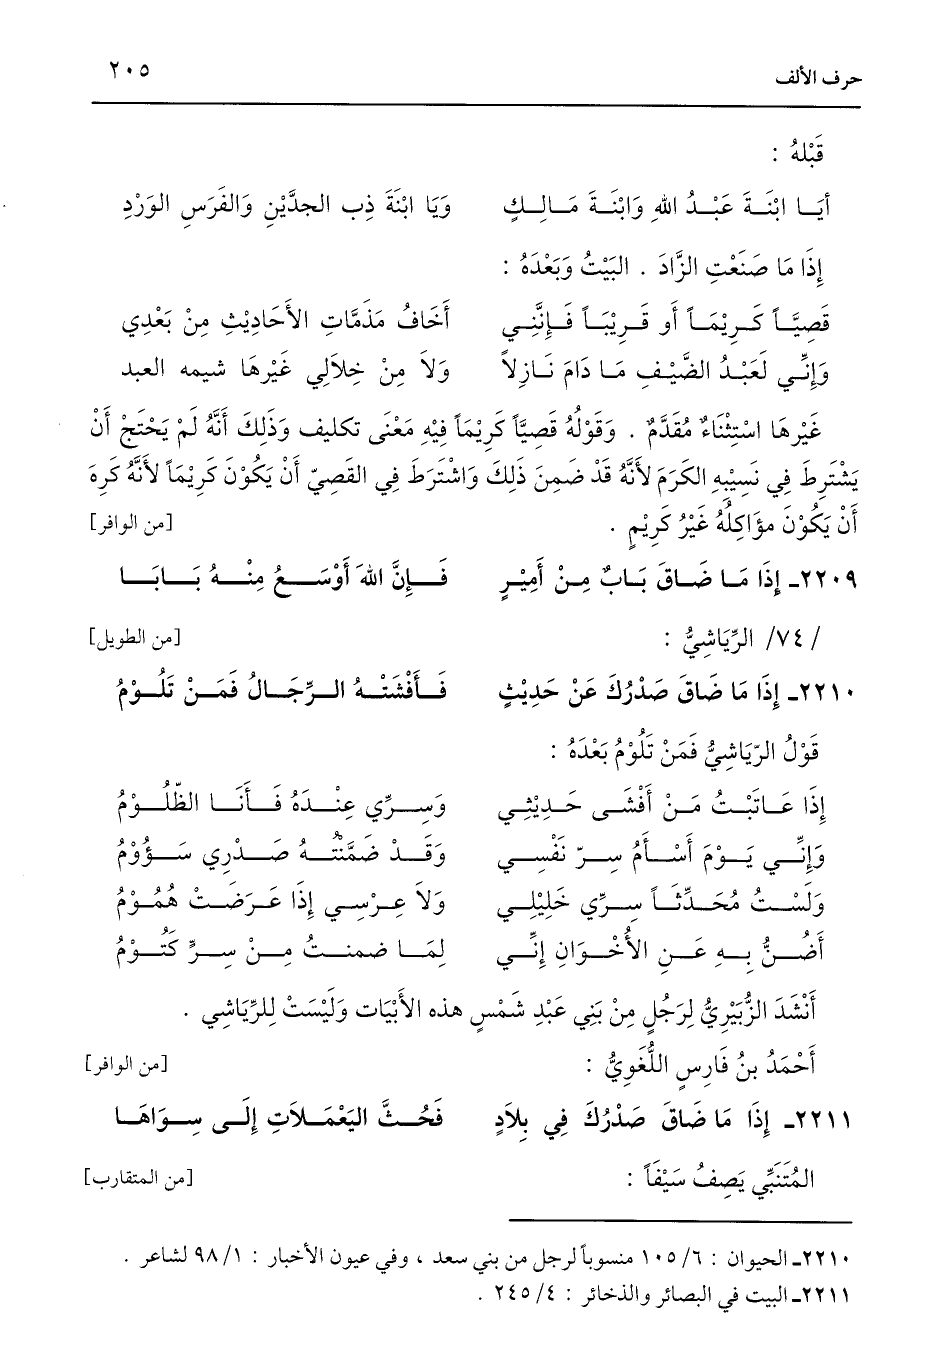 حرف الألف ٢٠٥
قَبْلهُ :
أيَا ابْنَةَ عَبْدُ اللهِ وَابْنَةَ مَالِكٍ وَيَا ابْنَةَ ذِي الجدَّيْنِ وَالفَرَسِ الوَرْدِ
إِذَا مَا صَنَعْتِ الزَّادَ . البَيْتُ وَبَعْدَهُ :
قَصِيَّاً كَرِيْمَاً أو قَرِيْبَاً فَإِنَّنِي أَخَافُ مَذَمَّاتِ الأَحَادِيْثِ مِنْ بَعْدِي
وَإِنِّي لَعَبْدُ الضَّيْفِ مَا دَامَ نَازِلاً وَلاَ مِنْ خِلاَلِي غَيْرهَا شيمه العبد
غَيْرهَا اسْتِثْنَاءٌ مُقَدَّمٌ . وَقَوْلُهُ قَصِيَّاً كَرِيْمَاً فِيْهِ مَعْنَى تكليف وَذَلِكَ أَنَّهُ لَمْ يَحْتَجْ أَنْ
يَشْتَرِطَ فِي نَسِيْبِهِ الكَرَمَ لأَنَّهُ قَدْ ضَمِنَ ذَلِكَ وَاشْتَرَطَ فِي القَصِيّ أَنْ يَكُوْنَ كَرِيْمَاً لأَنَّهُ كَرِهَ
أَنْ يَكُوْنَ مؤَاكِلُهُ غَيْرُ كَرِيْمٍ . [من الوافر]
٢٢٠٩ـ إِذَا مَا ضَاقَ بَابٌ مِنْ أَمِيْرٍ فَإِنَّ اللهَ أَوْسَعُ مِنْهُ بَابَا
/ ٧٤/ الرِّيَاشِيُّ : [من الطويل]
٢٢١٠ـ إِذَا مَا ضَاقَ صَدْرُكَ عَنْ حَدِيْثٍ فَأَفْشَتْهُ الرِّجَالُ فَمَنْ تَلُوْمُ
قَوْلُ الرّيَاشِيُّ فَمَنْ تَلُوْمُ بَعْدَهُ :
إِذَا عَاتَبْتُ مَنْ أَفْشَى حَدِيْثِي وَسِرِّي عِنْدَهُ فَأَنَا الظَّلُوْمُ
وَإِنِّي يَوْمَ أَسْأَمُ سِرّ نَفْسِي وَقَدْ ضَمَّنْتُهُ صَدْرِي سَؤُوْمُ
وَلَسْتُ مُحَدِّثَاً سِرِّي خَلِيْلِي وَلاَ عِرْسِي إِذَا عَرَضَتْ هُمُوْمُ
أَضُنُّ بِهِ عَنِ الأُخْوَانِ إِنِّي لِمَا ضمنتُ مِنْ سِرٍّ كَتُوْمُ
أَنْشَدَ الزُّبَيْرِيُّ لِرَجُلٍ مِنْ بَنِي عَبْدِ شَمْسٍ هذه الأَبْيَات وَلَيْسَتْ لِلرِّيَاشِي .
أَحْمَدُ بنُ فَارِسٍ اللُّغَوِيُّ : [من الوافر]
٢٢١١ـ إِذَا مَا ضَاقَ صَدْرُكَ فِي بِلاَدٍ فَحُثَّ اليَعْمَلاَتِ إِلَى سِوَاهَا
المُتَنَبِّي يَصِفُ سَيْفَاً : [من المتقارب]
٢٢١٠ـ الحيوان : ١٠٥/٦ منسوباً لرجل من بني سعد ، وفي عيون الأخبار : ٩٨/١ لشاعر .
٢٢١١ـ البيت في البصائر والذخائر : ٢٤٥/٤ .